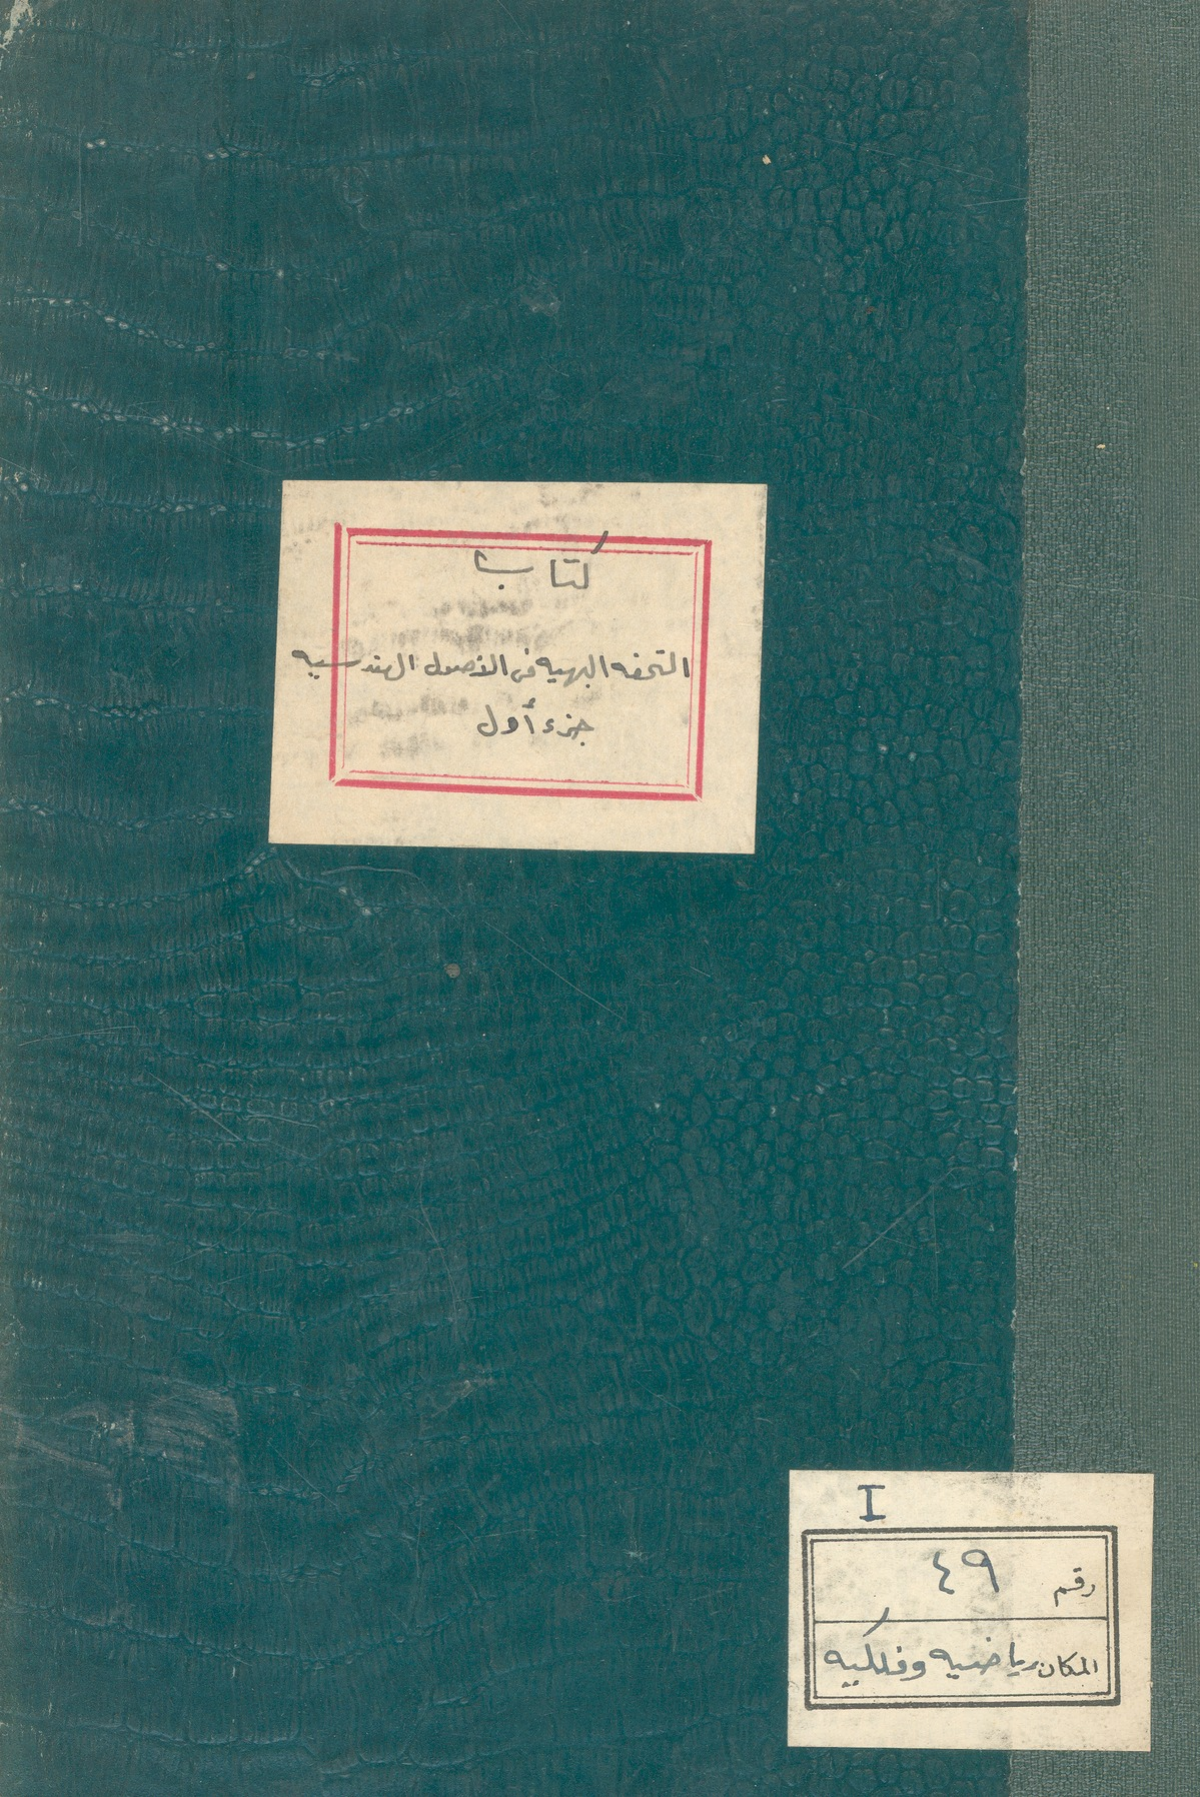 كتاب
التحفه البهيه فى الأصول الهندسيه
جزء أول
I
رقم ٤٩
المكان رياضيه وفلكيه